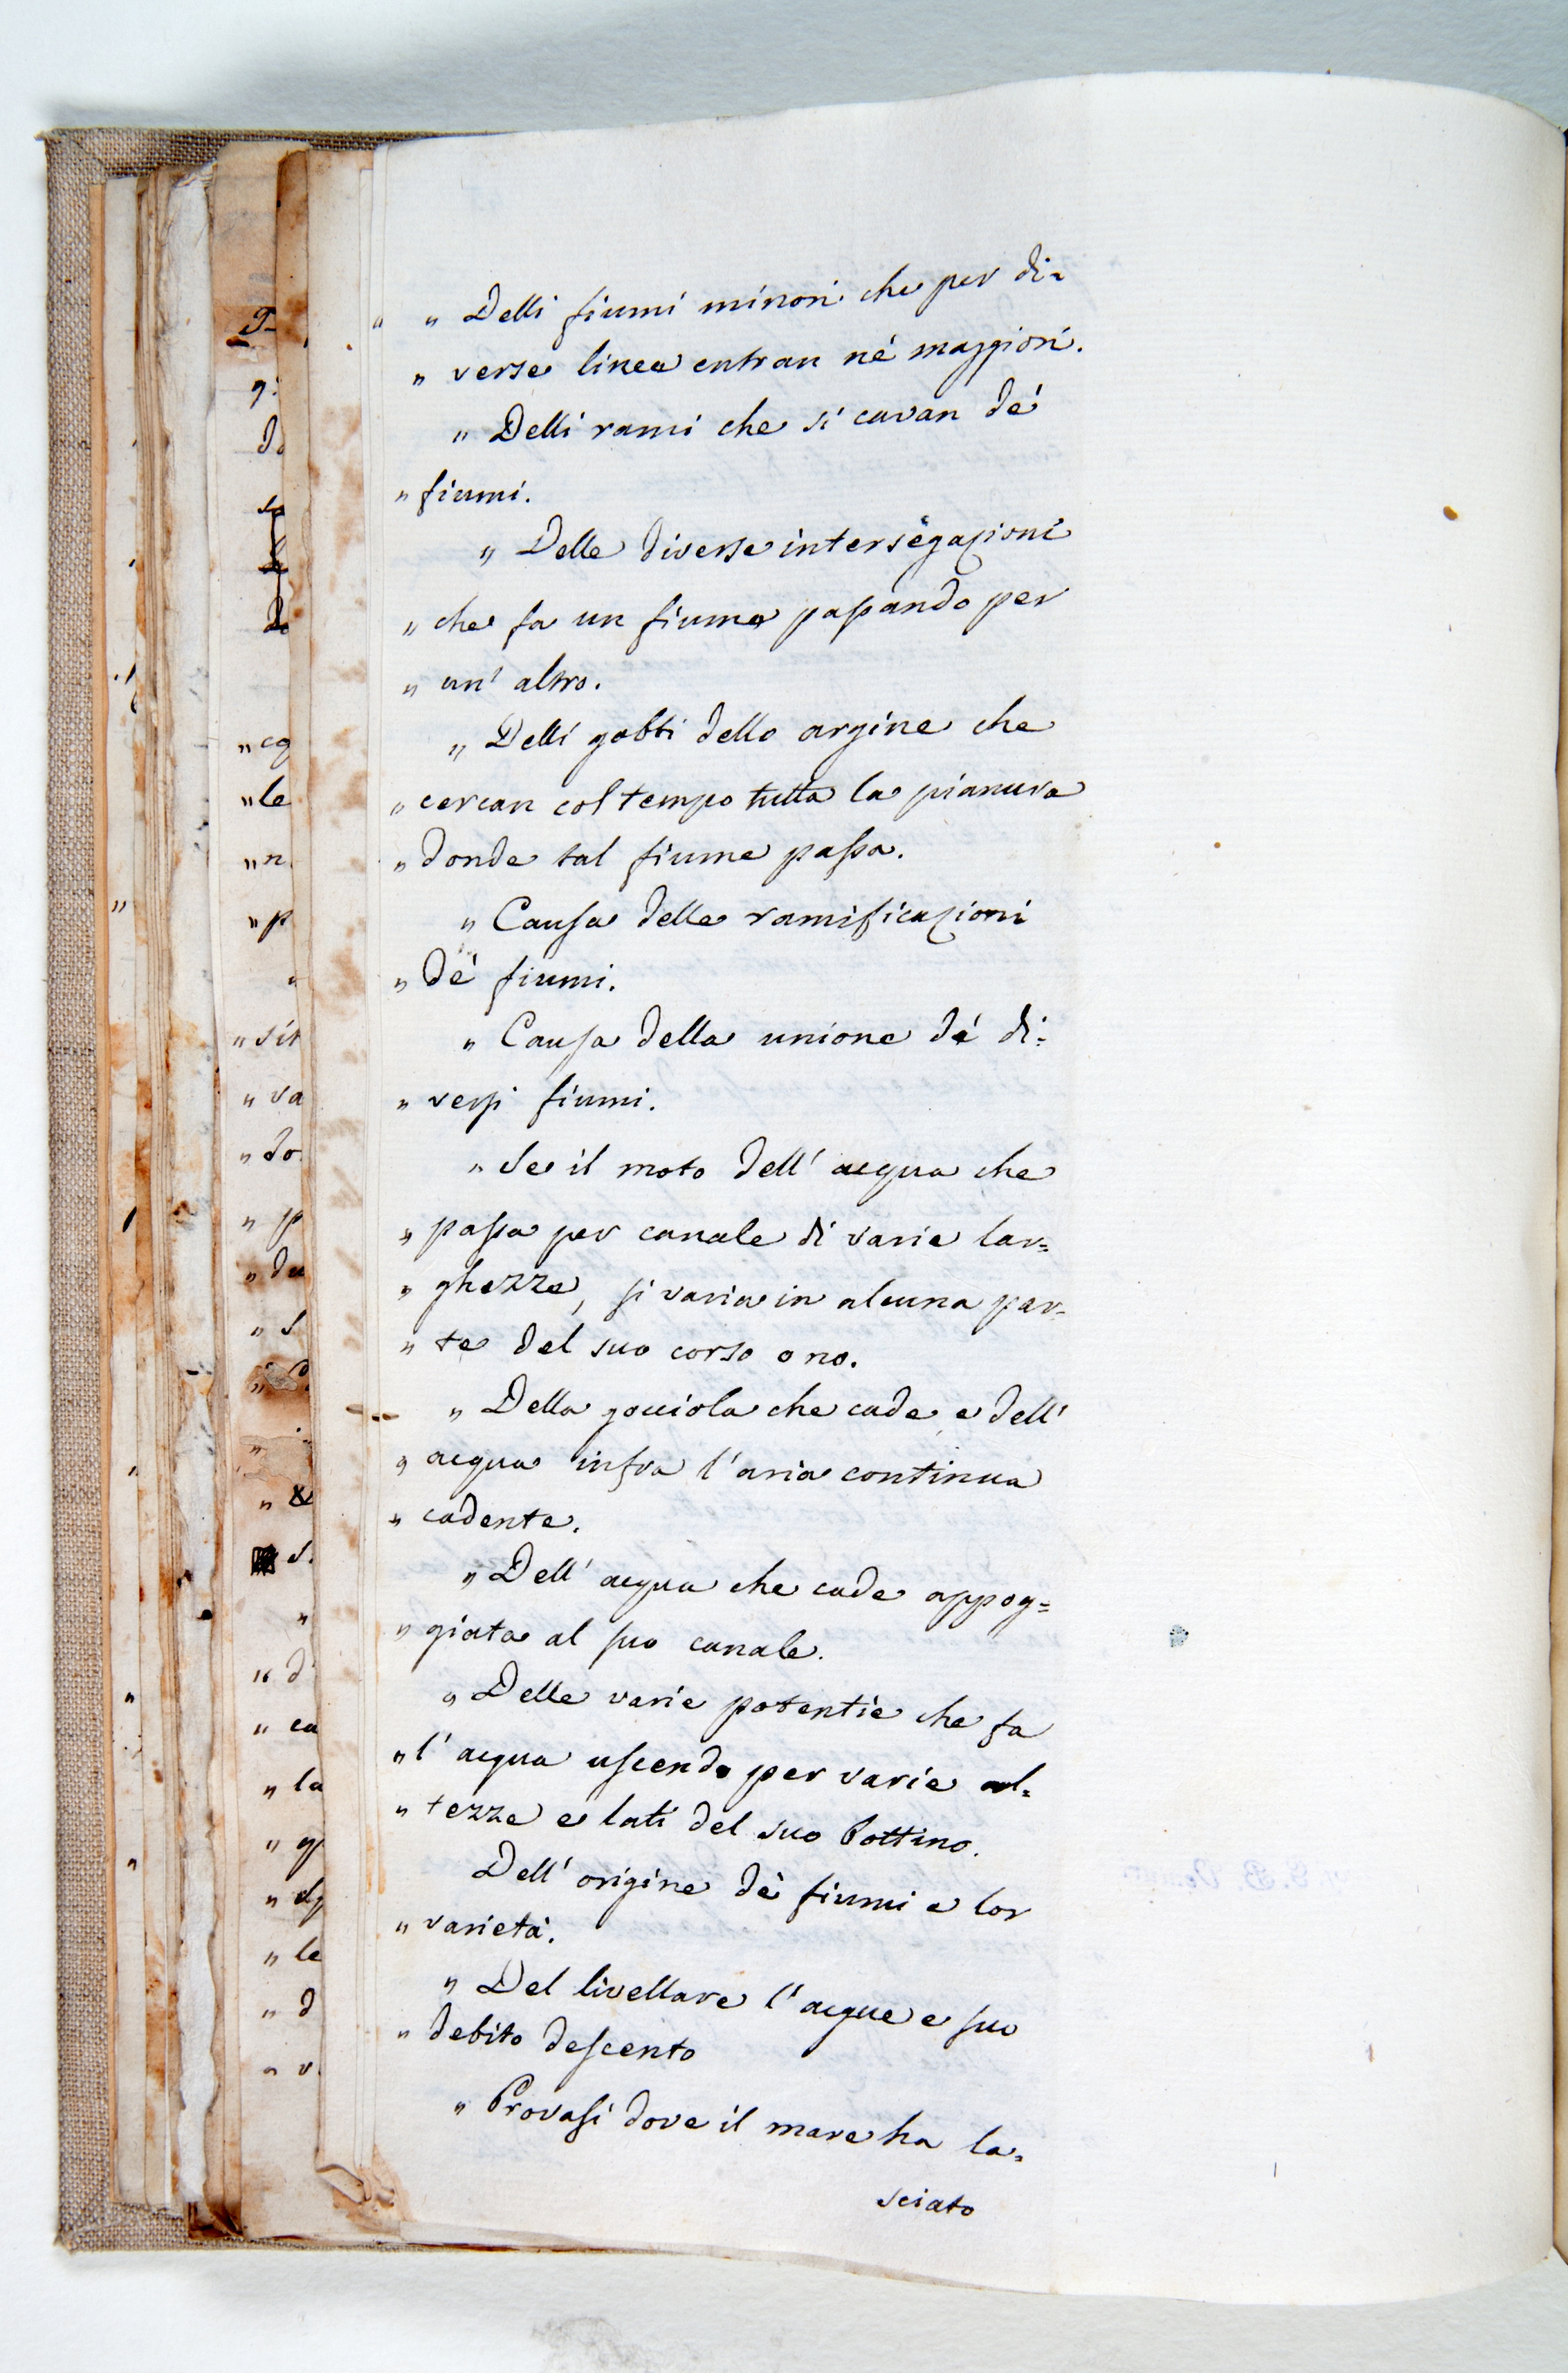 " " Delli fiumi minori che per di=
" verse linee entran né maggiori.
" Delli rami che si cavan dé
" fiumi.
" Delle diverse intersegazioni
" che fa un fiume passando per
" un' altro.
" Delli gobbi dello argine che
" cercan col tempo tutta la pianura
" donde tal fiume passa.
" Causa delle ramificazioni
" dé fiumi.
" Causa della unione dé di=
" versi fiumi.
" Se il moto dell' acqua che
" passa per canale di varie lar=
" ghezze, si varia in alcuna par=
" te del suo corso o no.
" Della gocciola che cade, e dell'
" acqua infra l'aria continua
" cadente.
" Dell' acqua che cade appog=
" giata al suo canale.
" Delle varie potentie che fa
" l' acqua uscendo per varie al=
" tezze e lati del suo bottino.
Dell' origine dè fiumi e lor
" varietà.
" Del livellare l' acque e suo
" debito descento
" Provasi dove il mare ha la=
sciato